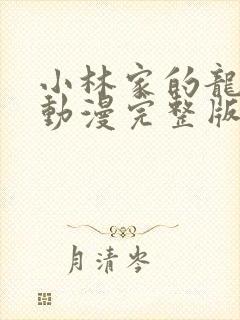 小林家的龍
動漫完整版
月清岑